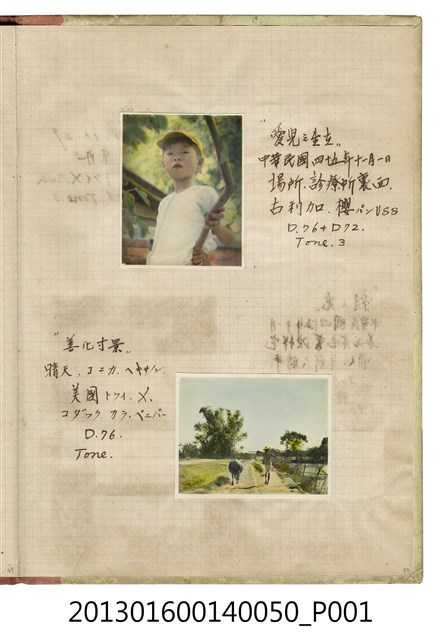 "愛児三生立。
中華民國四十五年十一月一日
場所.診療所裏面.
古利加.櫻パンUSS
D.76+D72.
Tone.3
"善化寸景。"
晴天.コニカ.ヘキサノン
美國トライ.X.
コダック カラ.ペーパー
D.76.
Tone.
201301600140050_P001